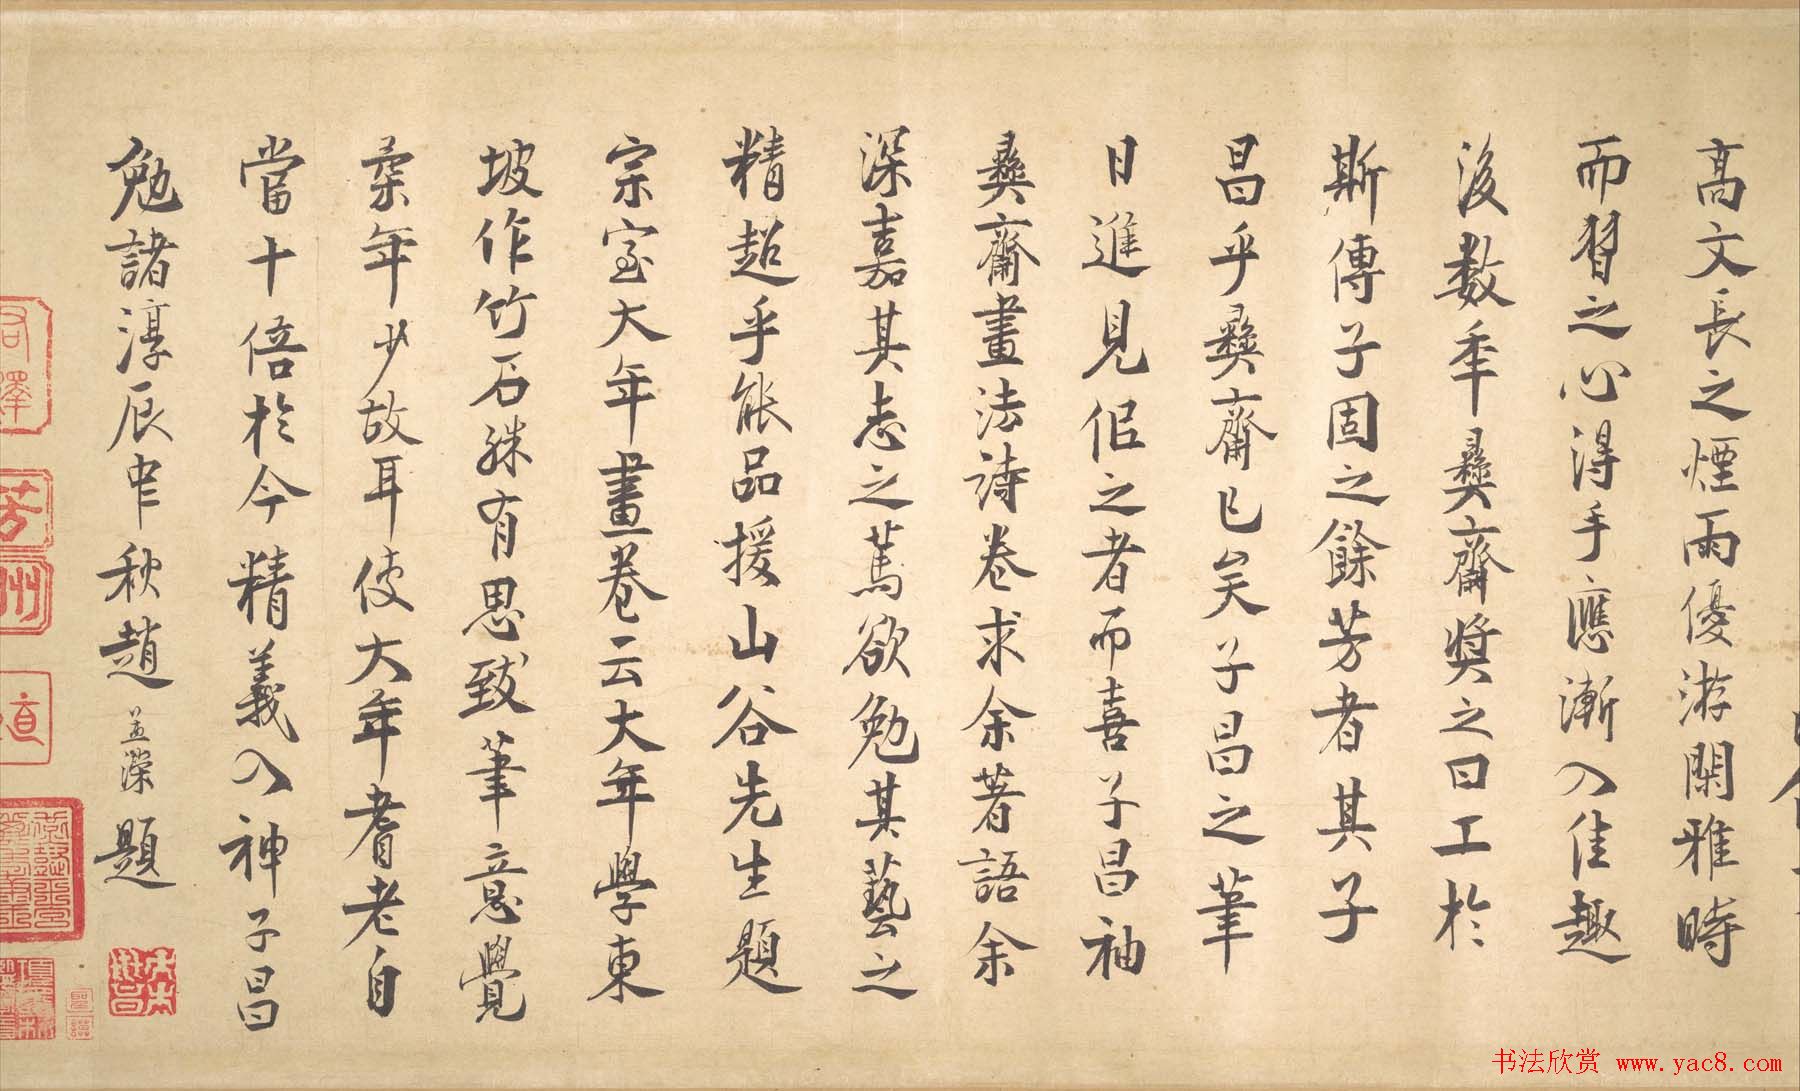 高文長之煙雨優游閑雅時
而習之心得手應漸入佳趣
後數年彝齋獎之曰工於
斯傳子固之餘芳者其子
昌乎彝齋已矣子昌之筆
日進見但之者而喜子昌袖
彝齋畫法詩卷求余著語余
深嘉其志之篤欲勉其藝之
精超乎能品援山谷先生題
宗室大年畫卷云大年學東
坡作竹石殊有思致筆意覺
柔年少故耳使大年耆老自
當十倍於今精義入神子昌
勉諸淳辰中秋趙孟濚題
书法欣赏 www.yac8.com